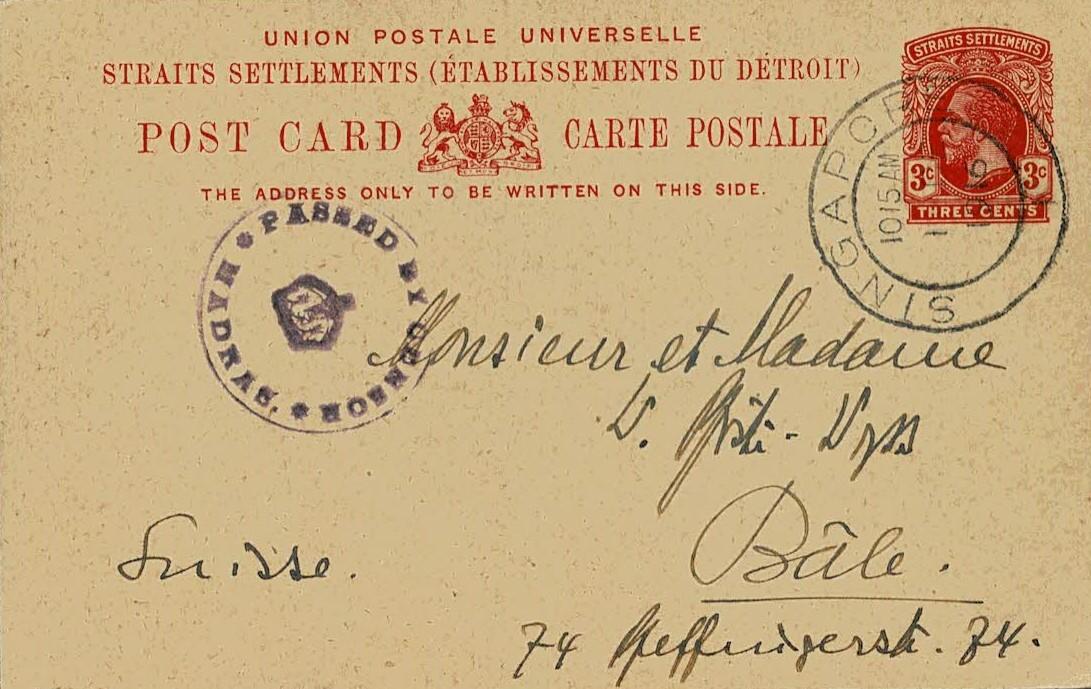 UNION POSTALE UNIVERSELLE
STRAITS SETTLEMENTS (ÉTABLISSEMENTS DU DÉTROIT)
POST CARD CARTE POSTALE
THE ADDRESS ONLY TO BE WRITTEN ON THIS SIDE.
STRAITS SETTLEMENTS
3c 3c
THREE CENTS
SINGAPORE
1015 AM
PASSED BY CENSOR
Monsieur et Madame
Wyss
Bâle.
Suisse.
74 Pfeffingerstr. 74.